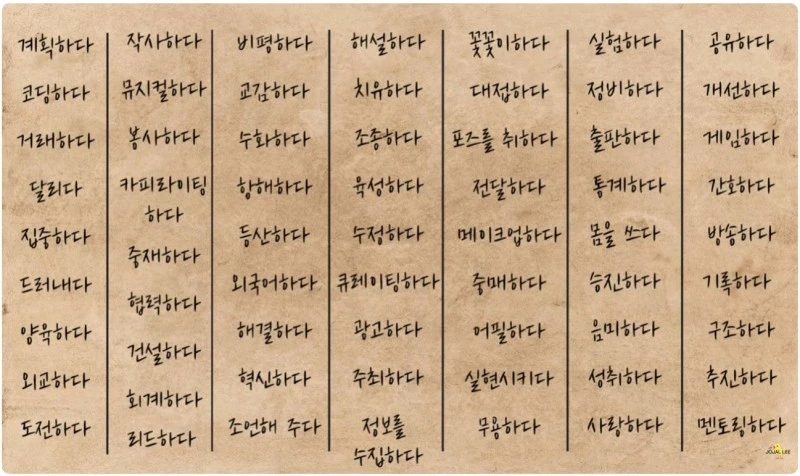 계획하다
코딩하다
거래하다
달리다
집중하다
드러내다
양육하다
외교하다
도전하다
작사하다
뮤지컬하다
봉사하다
카피라이팅
하다
중재하다
협력하다
건설하다
회계하다
리드하다
비평하다
교감하다
수화하다
항해하다
등산하다
외국어하다
해결하다
혁신하다
조언해 주다
해설하다
치유하다
조종하다
육성하다
수정하다
큐레이팅하다
광고하다
주최하다
정보를
수집하다
꽃꽂이하다
대접하다
포즈를 취하다
전달하다
메이크업하다
중매하다
어필하다
실현시키다
무용하다
실험하다
정비하다
출판하다
통계하다
몸을 쓰다
승진하다
음미하다
성취하다
사랑하다
공유하다
개선하다
게임하다
간호하다
방송하다
기록하다
구조하다
추진하다
멘토링하다
JOJAL LEE